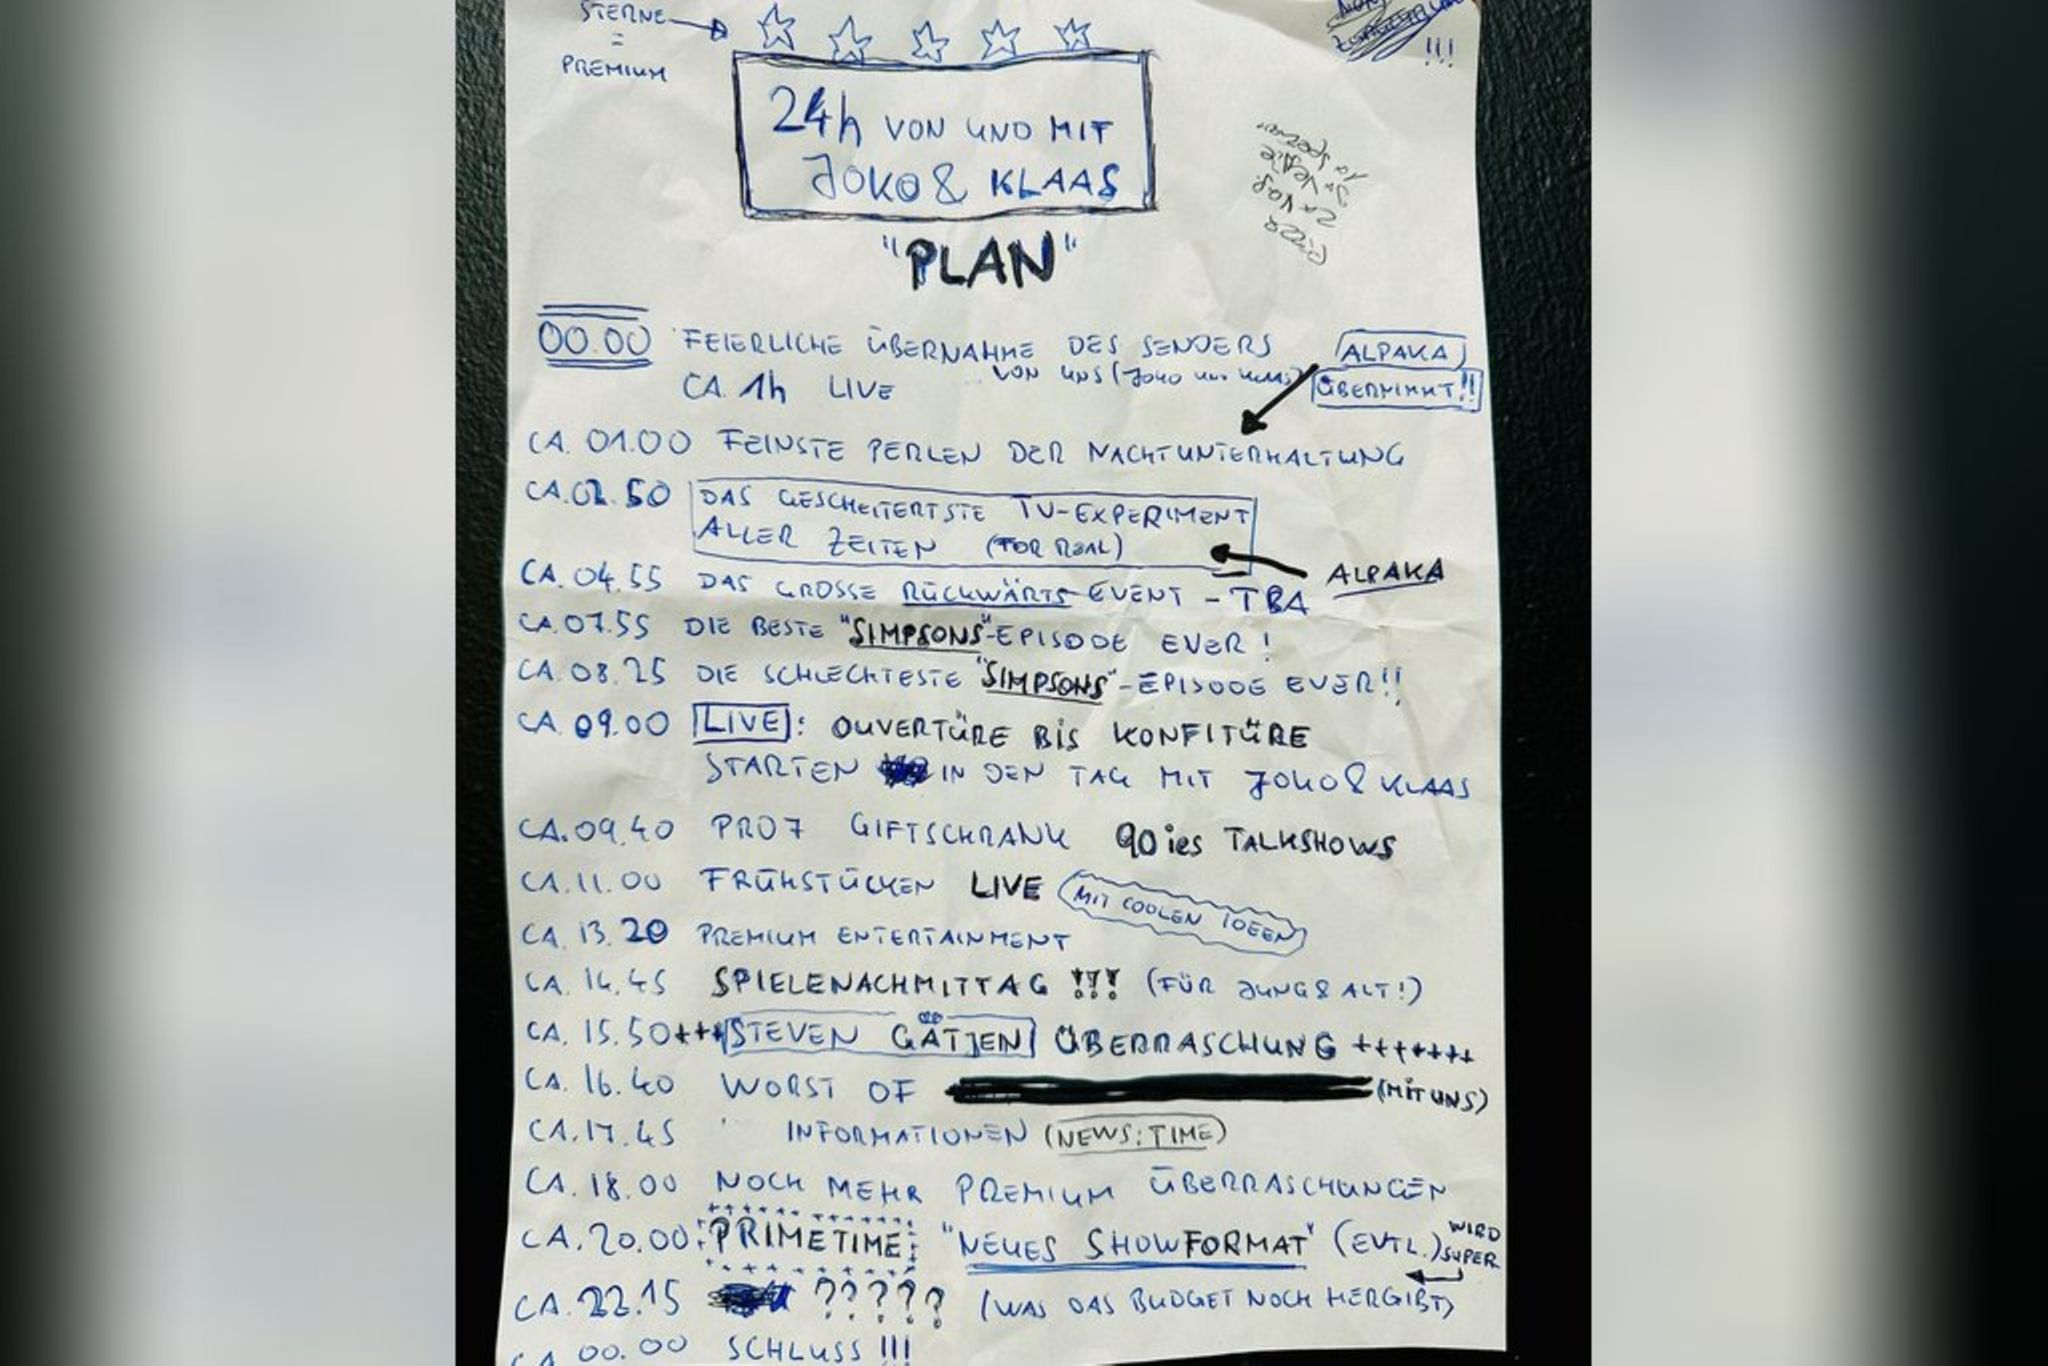 STERNE
=
PREMIUM
!!!
24h VON UND MIT
JOKO & KLAAS
"PLAN"
Pizza
00.00 FEIERLICHE ÜBERNAHME DES SENDERS
VON UNS (JOKO UND KLAAS)
CA. 1h LIVE
ALPAKA
ÜBERNIMMT!!
CA. 01.00 FEINSTE PERLEN DER NACHTUNTERHALTUNG
CA. 02.50 DAS GESCHEITERTSTE TV-EXPERIMENT
ALLER ZEITEN (FOR REAL)
ALPAKA
CA. 04.55 DAS GROSSE RÜCKWÄRTS-EVENT - TBA
CA. 07.55 DIE BESTE "SIMPSONS"-EPISODE EVER!
CA. 08.25 DIE SCHLECHTESTE "SIMPSONS"-EPISODE EVER!!
CA. 09.00 LIVE: OUVERTÜRE BIS KONFITÜRE
STARTEN IN DEN TAG MIT JOKO & KLAAS
CA. 09.40 PRO7 GIFTSCHRANK 90ies TALKSHOWS
CA. 11.00 FRÜHSTÜCKEN LIVE MIT COOLEN IDEEN
CA. 13.20 PREMIUM ENTERTAINMENT
CA. 14.45 SPIELENACHMITTAG !!! (FÜR JUNG & ALT!)
CA. 15.50 +++ STEVEN GÄTJEN ÜBERRASCHUNG +++++++
CA. 16.40 WORST OF (MIT UNS)
CA. 17.45 INFORMATIONEN (NEWS:TIME)
CA. 18.00 NOCH MEHR PREMIUM ÜBERRASCHUNGEN
CA. 20.00 PRIMETIME "NEUES SHOWFORMAT" (EVTL.) WIRD SUPER
CA. 22.15 ????? (WAS DAS BUDGET NOCH HERGIBT)
CA 00.00 SCHLUSS !!!